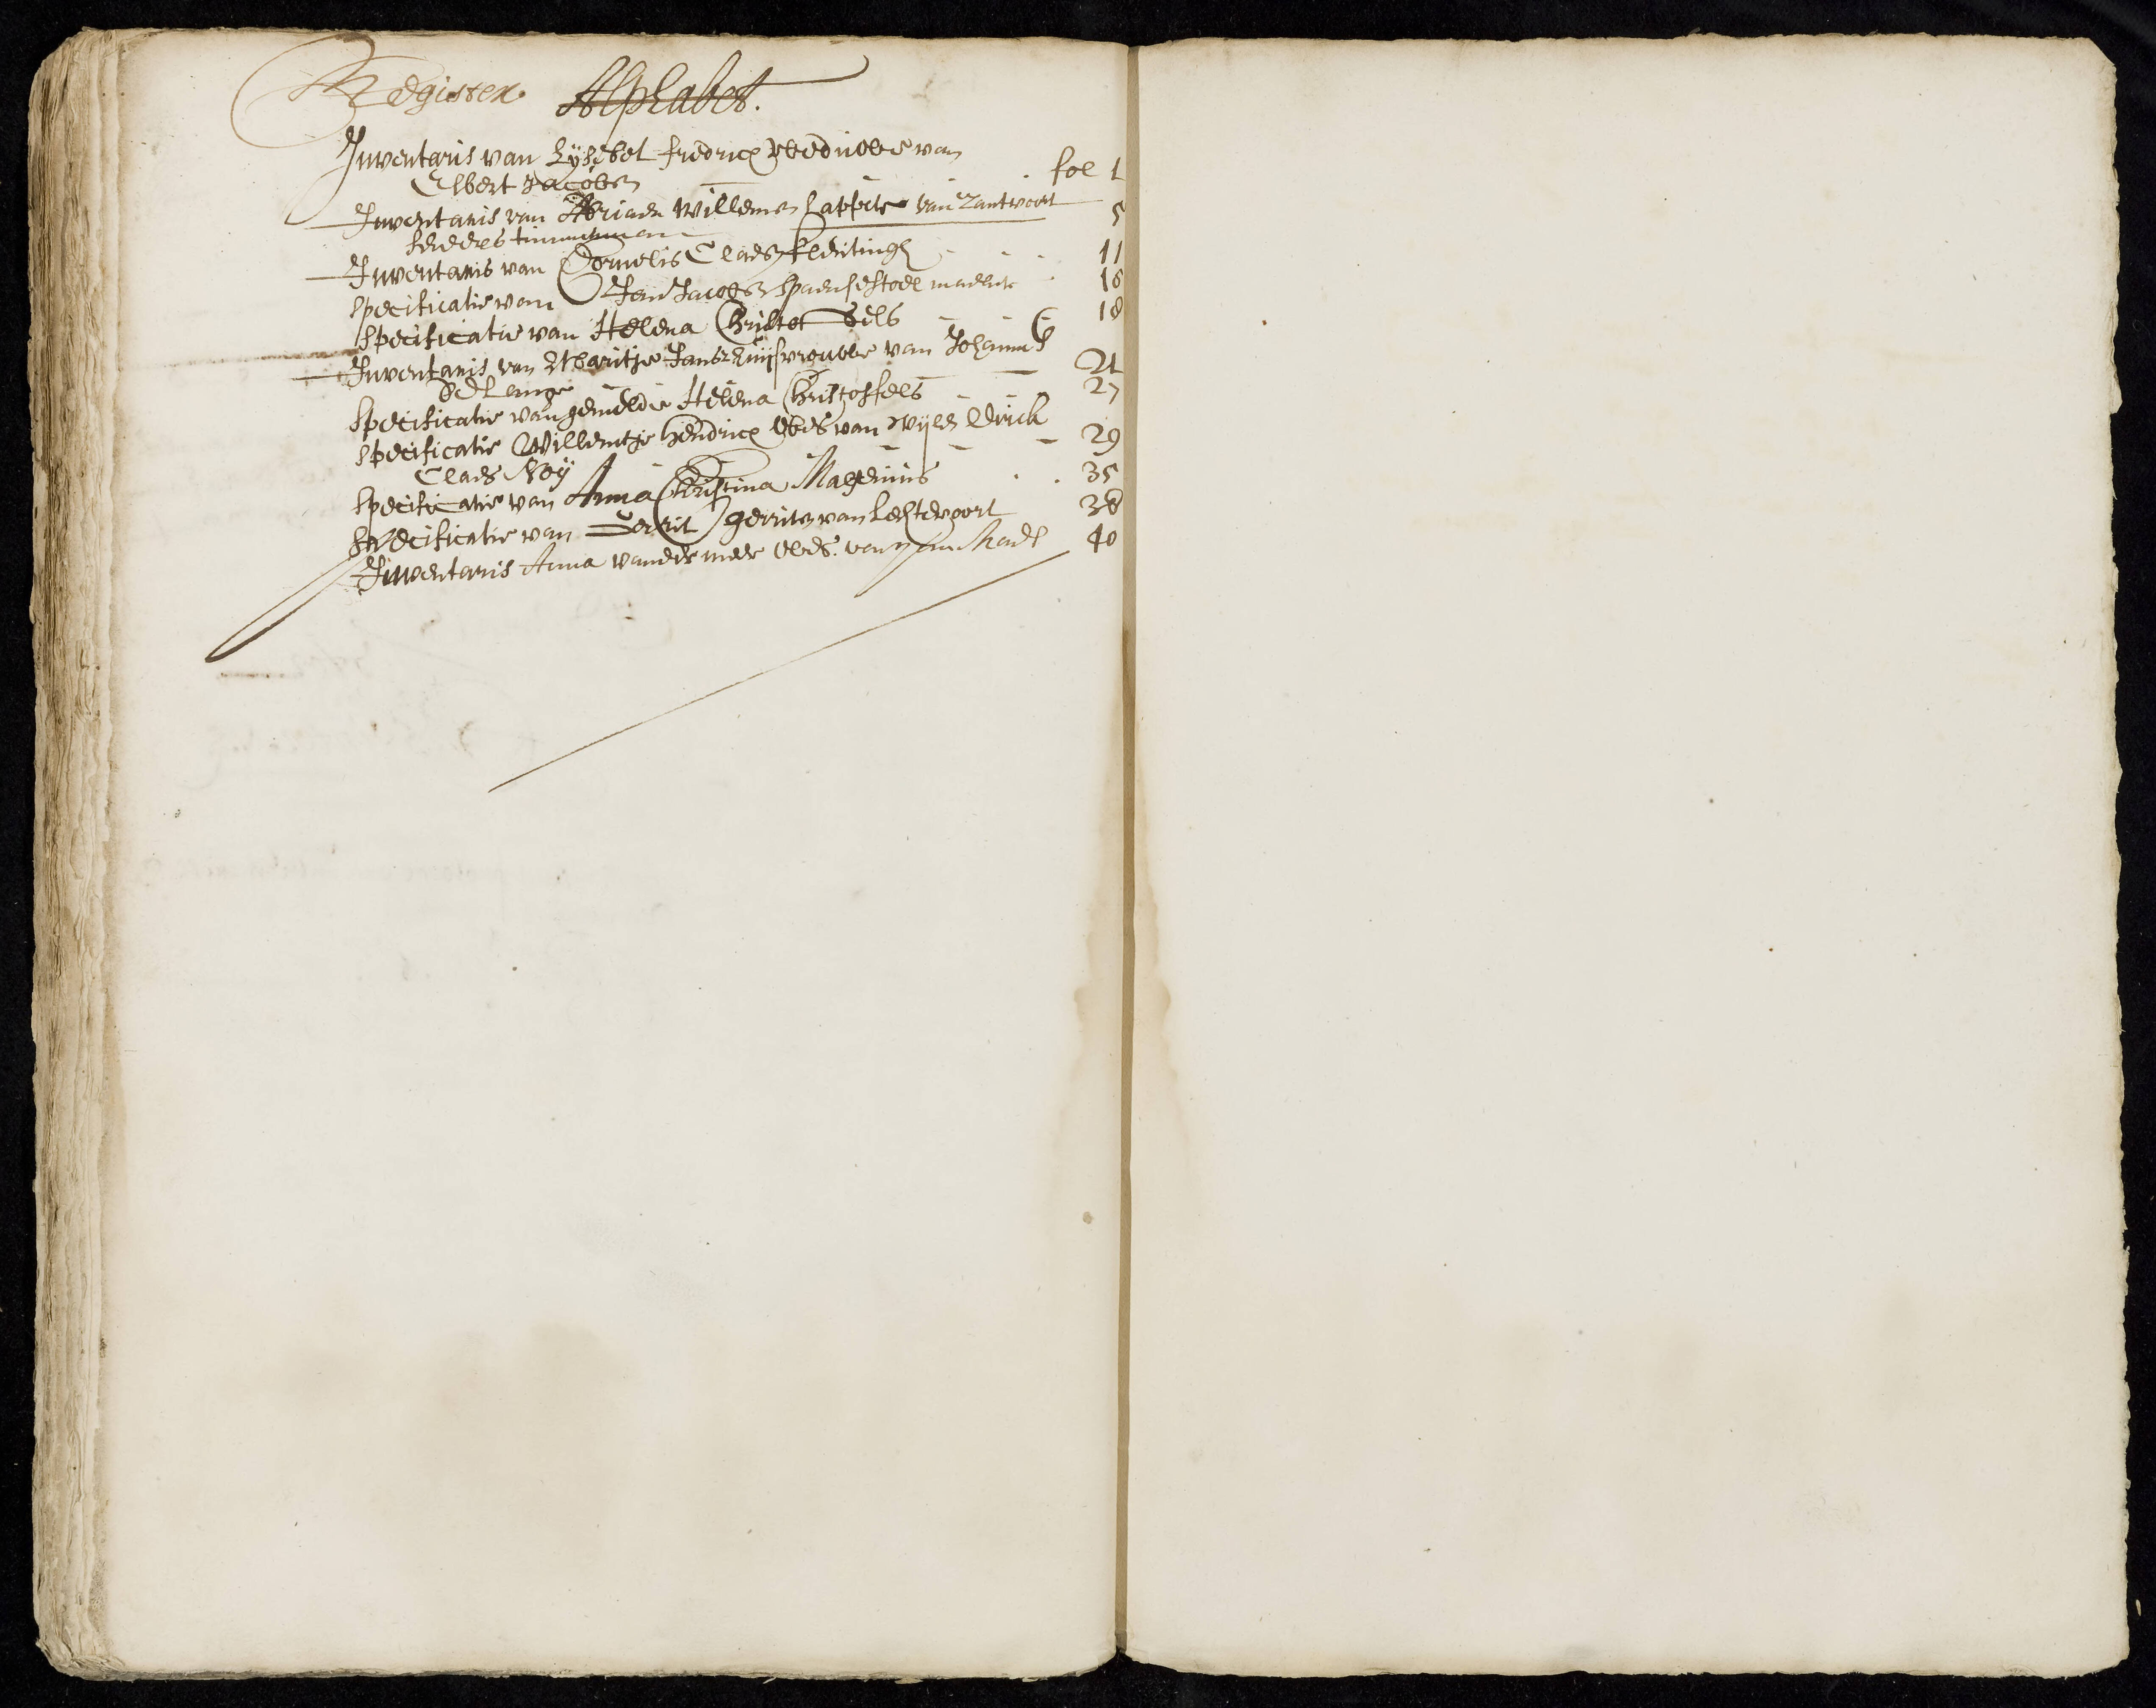 Register Alphabet.
Inventaris van Lijsebet fredricx weduwe van
Elbert Jacobsz fol 1
Inventaris van Adriaen Willemsz van Zantvoort 5
timmerman
Inventaris van Cornelis Claesz 11
Specificatie van Jan Jacobsz spaensestoel maecker 16
Specificatie van Helena Christoffels 18
Inventaris van Maritje Jans huijsvrouwe van Johannes
de Lange 21
Specificatie van gemelde Helena Christoffels 27
Specificatie Willemtje Hendricx wede van wijlen Dirck
Claes Roy 29
Specificatie van Anna Christina Magenius 35
Specificatie van Gerrit gerritsz van Lechtevoort 38
Inventaris Anna vander meer wede. van 40